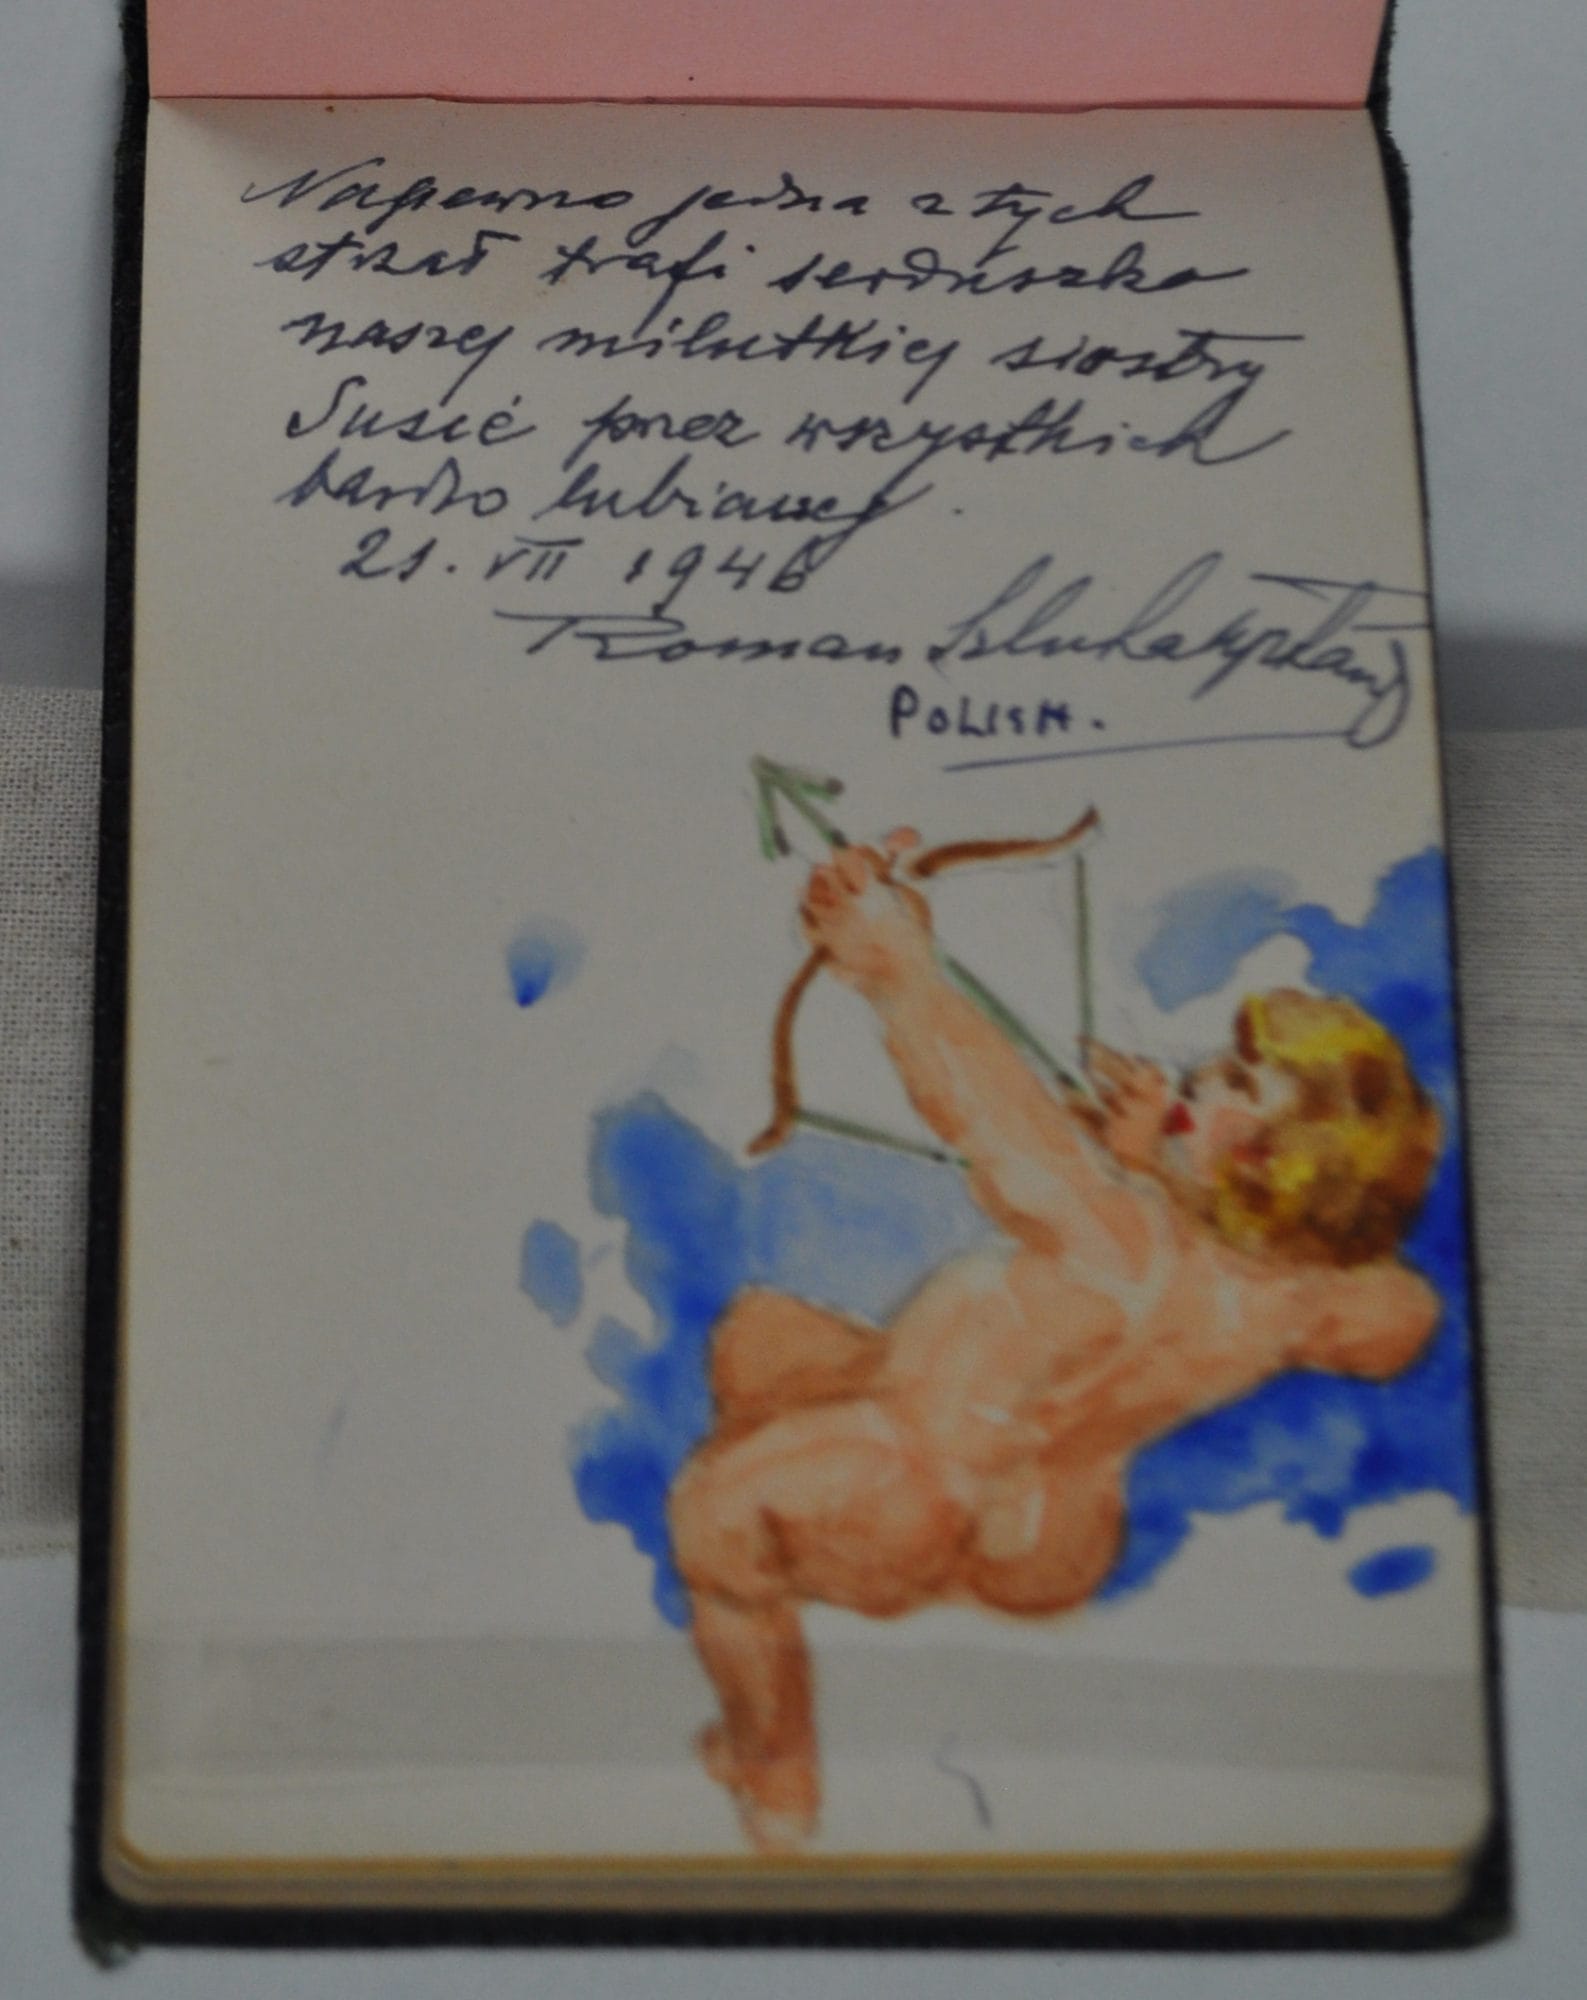 Napewno jedna z tych
strzał trafi serduszko
naszej milutkiej siostry
Susie przez wszystkich
bardzo lubianej.
21. VII 1946
Roman
POLISH.